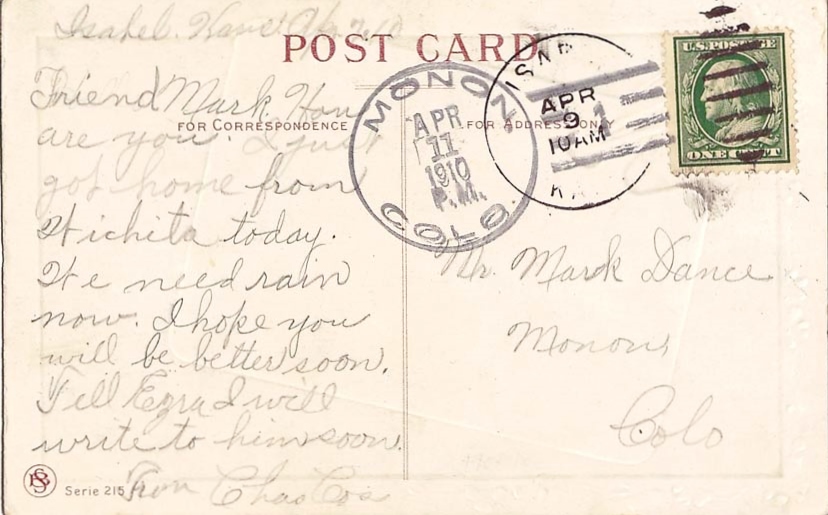 Isabel. Kans.
POST CARD
FOR CORRESPONDENCE
FOR ADDRESS ONLY
Friend Mark. How
are you. I just
got home from
Wichita today.
We need rain
now. I hope you
will be better soon.
Tell Ezra I will
write to him soon.
From Chas Cos
Serie 215
MONON
APR
11
1910
P.M.
COLO.
ISABE
APR
9
10AM
KA
1
U.S. POSTAGE
ONE CENT
Mr. Mark Dance
Monon
Colo